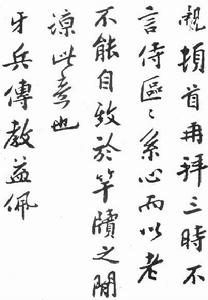 頓首再拜三時不
言侍區〻系心而以老
不能自致於竿牘之閒
諒此意也
牙兵傳教益佩